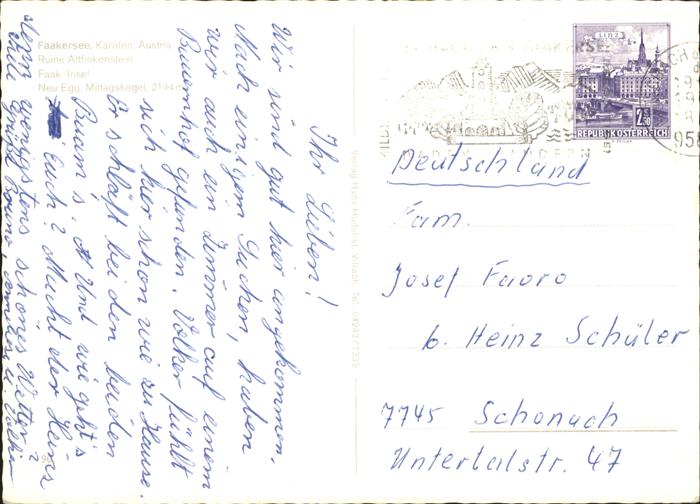 Faakersee, Kärnten, Austria
Ruine Altfinkenstein
Faak-Insel
Neu Egg, Mittagskogel, 2144 m
Ihr Lieben!
Wir sind gut hier angekommen.
Nach einigem Suchen, haben
wir auch ein Zimmer auf einem
Bauernhof gefunden. Volker fühlt
sich hier schon wie zu Hause.
Er schläft bei den beiden
Buam's. Und wie geht's
Euch? Macht der Heinz
wenigstens schönes Wetter?
Viele Grüße
Verlag Hans Villach, Tel. 04242/7335
LINZ
2.50
REPUBLIK ÖSTERREICH
FAAKERSEE
958
Deutschland
Fam.
Josef Faoro
b. Heinz Schüler
7745 Schonach
Untertalstr. 47